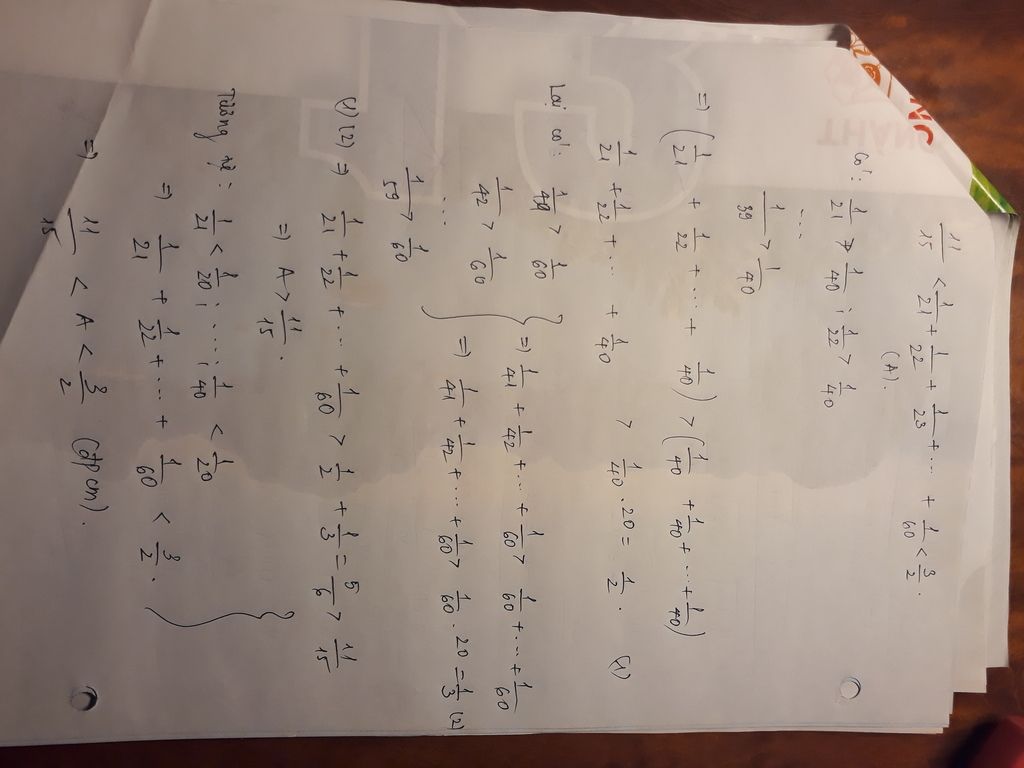 11/15 < 1/21 + 1/22 + 1/23 + ... + 1/60 < 3/2.
(A).
Có: 1/21 > 1/40 ; 1/22 > 1/40
...
1/39 > 1/40
=) (1/21 + 1/22 + ... + 1/40) > (1/40 + 1/40 + ... + 1/40)
1/21 + 1/22 + ... + 1/40 > 1/40 . 20 = 1/2 . (1)
Lại có: 1/40 > 1/60
1/42 > 1/60
...
1/59 > 1/60
=) 1/41 + 1/42 + ... + 1/60 > 1/60 + ... + 1/60
=) 1/41 + 1/42 + ... + 1/60 > 1/60 . 20 = 1/3 (2)
(1) (2) =) 1/21 + 1/22 + ... + 1/60 > 1/2 + 1/3 = 5/6 > 11/15
=) A > 11/15 .
Tương tự : 1/21 < 1/20 ; ... ; 1/40 < 1/20
=) 1/21 + 1/22 + ... + 1/60 < 3/2 .
=) 11/15 < A < 3/2 (đpcm).